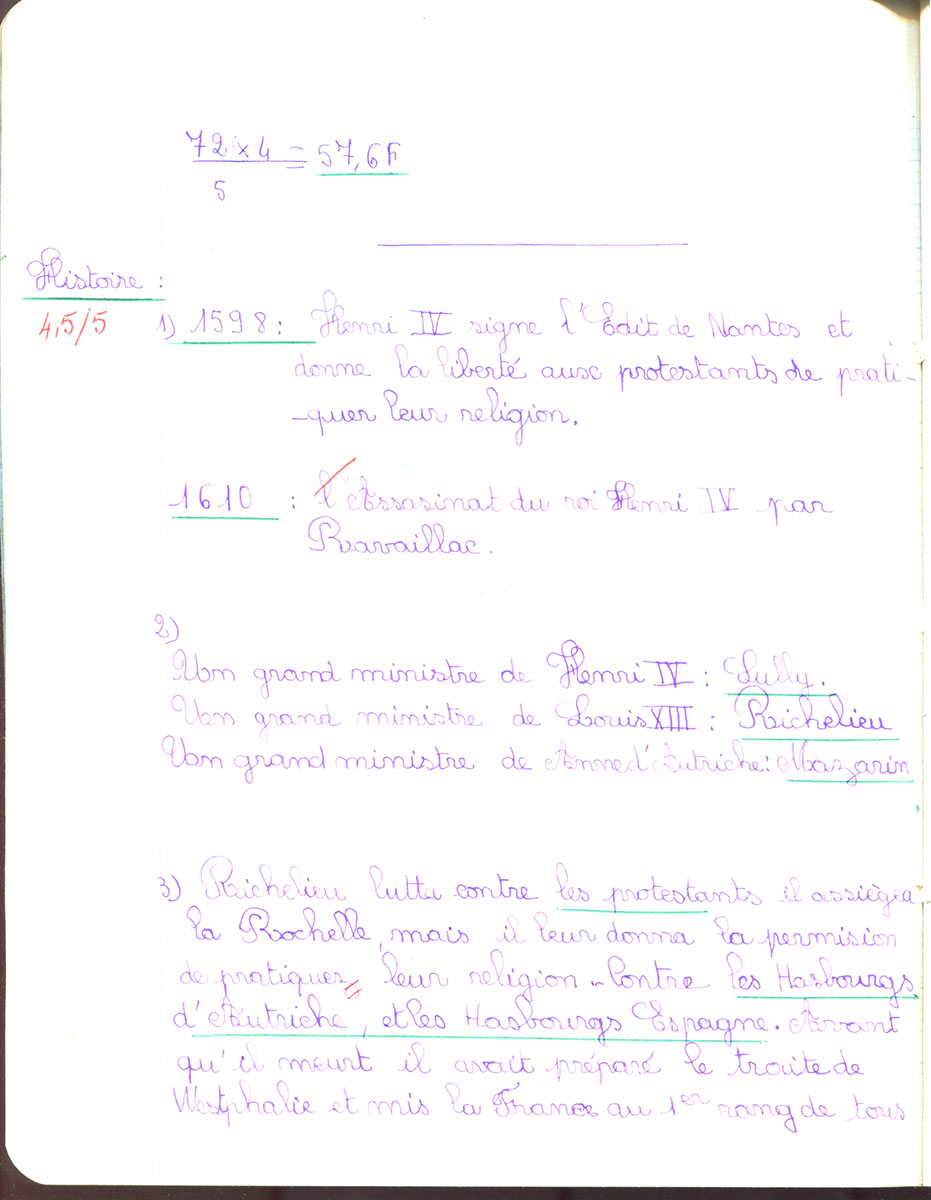 72 x 4 = 57,6F
5
Histoire :
4,5/5
1) 1598 : Henri IV signe l'Edit de Nantes et
donne la liberté aux protestants de prati-
-quer leur religion.
1610 : l'Assasinat du roi Henri IV par
Ravaillac.
2)
Un grand ministre de Henri IV : Sully.
Un grand ministre de Louis XIII : Richelieu
Un grand ministre de Anne d'Autriche : Mazarin
3) Richelieu lutta contre les protestants il assiègea
la Rochelle, mais il leur donna la permision
de pratiquer leur religion. Contre les Hasbourgs
d'Autriche, et les Hasbourgs Espagne. Avant
qu'il meurt il avait préparé le traite de
Westphalie et mis la France au 1er rang de tous